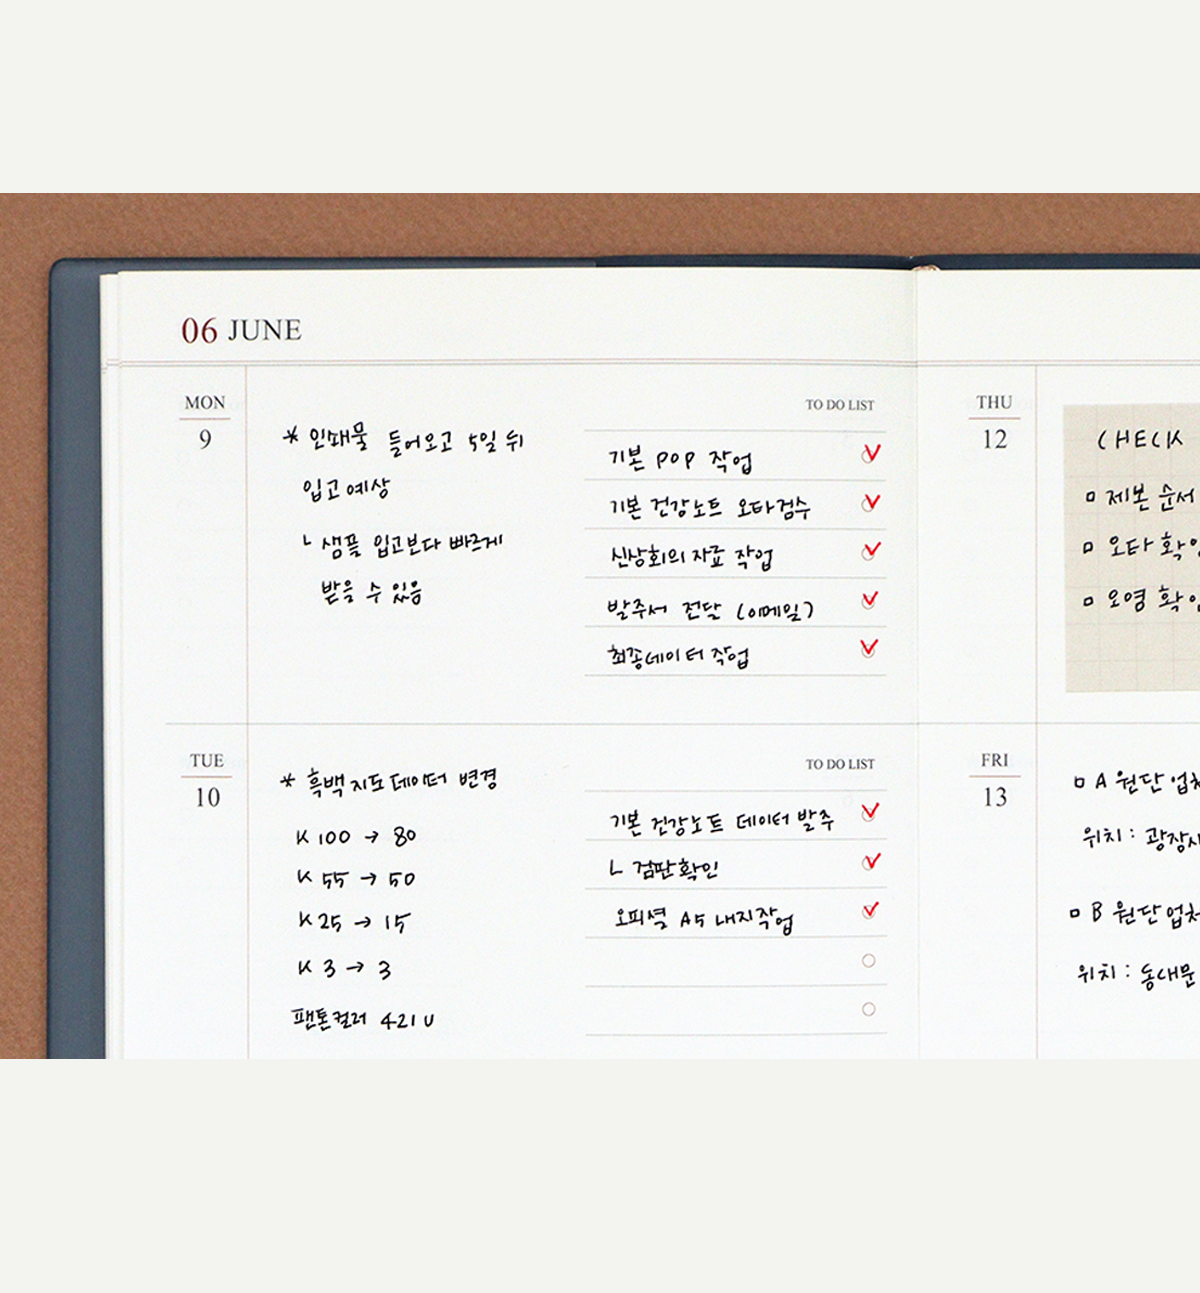 06 JUNE
MON
9
* 인쇄물 들어오고 5일 뒤
입고예상
ㄴ 샘플 입고보다 빠르게
받을 수 있음
TO DO LIST
기본 POP 작업
기본 건강노트 오타검수
신상회의 자료 작업
발주서 전달 (이메일)
최종데이터 작업
TUE
10
* 흑백지도데이터 변경
K 100 → 80
K 55 → 50
K 25 → 15
K 3 → 3
팬톤컬러 421 U
TO DO LIST
기본 건강노트 데이터 발주
ㄴ 검판확인
오피셜 A5 내지작업
THU
12
CHECK
□ 제본 순서
□ 오타 확인
□ 오염 확인
FRI
13
□ A 원단업체
위치 : 광장시
□ B 원단업체
위치 : 동대문